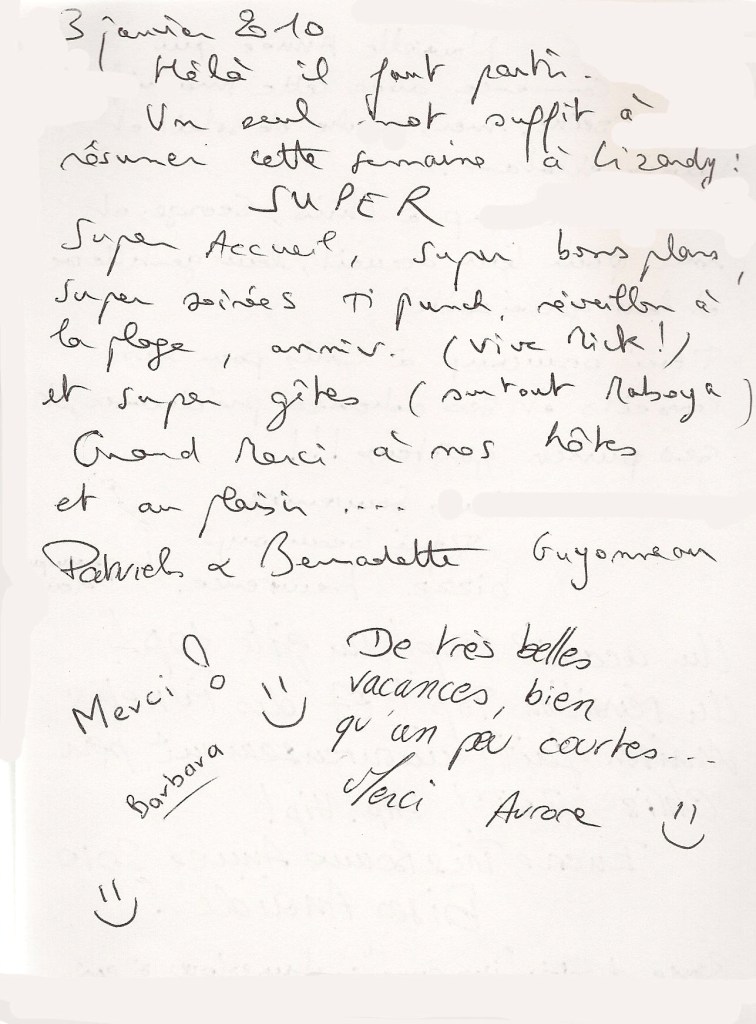 3 janvier 2010
Hélà il faut partir.
Un seul mot suffit à
résumer cette semaine à Lizardy :
SUPER
Super Accueil, super bons plans,
super soirées Ti punch, réveillon à
la plage, anniv. (vive Mick!)
et super gîtes (surtout Raboya)
Grand Merci à nos hôtes
et au plaisir ....
Patrick & Bernadette Guyonneau
Merci !
Barbara
De très belles
vacances, bien
qu'un peu courtes...
Merci Aurore